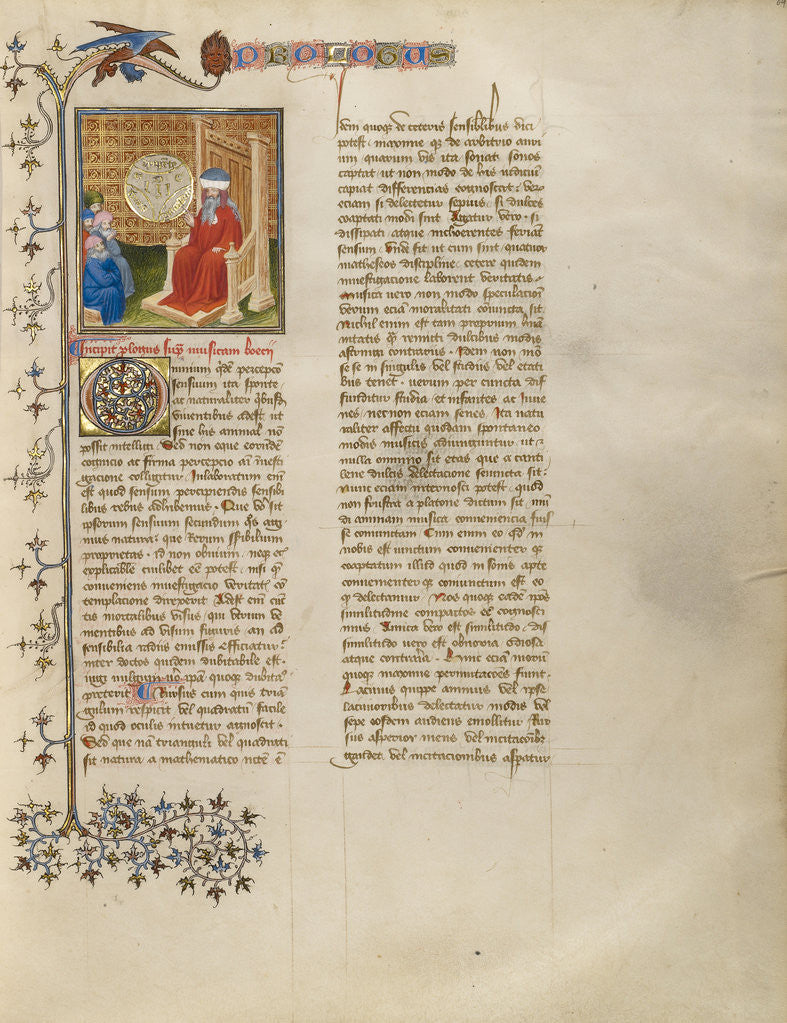 PROLOGUS
Incipit plogus sup musicam boecii
Omnium qde percepcō
sensium ita sponte
ac naturaliter qbusd
viventibus adest ut
sine his animal nō
possit intelligi. Sed non eque eorūdē
cognicio ac firma percepcio añi īnesti
gacione colligitur. Inlaboratum eni
est quod sensum percipiendis sensibi
libus rebus adhibemus. Que vo sit
ipsorum sensuum secundum qs agi
mus natura. que rerum ssibilium
proprietas. id non obvium. neqz ex
explicabile cuilibet eē potest. nisi qz
conveniens investigacio veritatis cō
templacione direxerit Adest eni cūc
tis mortalibus visus. qui utrum ve
nientibus ad visum figuris an ad
sensibilia radiis emissis efficiatur.
inter doctos quidem dubitabile est.
vulgum vo ipsa quoqz dubitao
preterit Rursus cum quis trian
gulum respicit vel quadratum facile
id quod oculis intuetur agnoscit.
Sed que nā trianguli vel quadrati
sit natura a mathematico necē ē
idem quoqz de ceteris sensibilibus dici
potest. maxime qz de arbitrio auri
um quarum vis ita sonos
captat ut non modo de his iudiciū
capiat differencias cognoscat. ve
eciam si delectetur sepius. si dulces
coaptati modi sint Angatur vero. si
dissipati atque incherentes feriāt
sensum. Unde fit ut cum sint quatuor
matheseos discipline. cetere quidem
investigacione laborent veritatis.
Musica vero non modo speculacioni
verum eciam moralitati coniuncta sit.
Nichil enim est tam proprium huma
nitatis qz remitti dulcibus modis
astringi contrariis. Idem non mo
se se in singulis vel studiis vel etati
bus tenet. verum per cuncta dif
funditur studia. et infantes ac iuve
nes. necnon eciam senes. Ita natu
raliter affectu quodam spontaneo
modis musicis adiunguntur. ut.
nulla omnino sit etas que a canti
lene dulcis delectacione seiuncta sit.
Hinc eciam internosci potest. quod
non frustra a platone dictum sit. mū
di animam musica conveniencia fuis
se coniunctam Cum enim eo qd in
nobis est iunctum convenienter qz
coaptatum illud quod in sonis apte
convenienter qz coniunctum est. eo
qz delectamur. Nos quoqz eadē ipos
similitudine compactos eē cognosci
mus. Amica vero est similitudo. dis
similitudo vero est obnoxia odiosa
atque contraria. Hinc eciam morum
quoqz maxime permutaciones fiunt.
Lacivus quippe animus vel ipse
lacivioribus delectatur modis vel
sepe eosdem audiens emollitur Rur
sus asperior mens vel incitacioribz
gaudet. vel incitacionibus aspatur